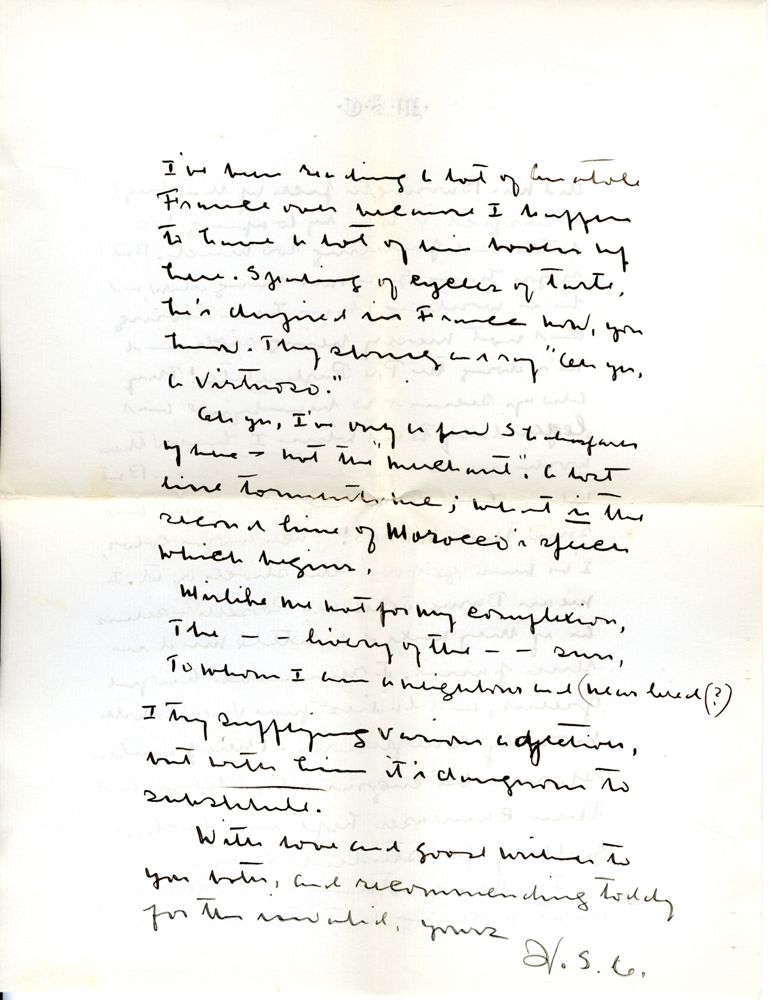 I've been reading a lot of Anatole
France over because I happen
to have a lot of his books up
here. Speaking of cycles of taste,
he's despised in France now, you
know. They shrug and say "Ah yes,
a Virtuoso."
Ah yes, I've only a few Shakespeares
up here — not the "Merchant". A lost
line torments me; what is the
second line of Morocco's speech
which begins,
Mislike me not for my complexion,
The — — livery of the — — sun,
To whom I am a neighbour and (near bred (?)
I try supplying various adjectives,
but with him it's dangerous to
substitute.
With love and good wishes to
you both, and recommending toddy
for the invalid, yours
W. S. C.